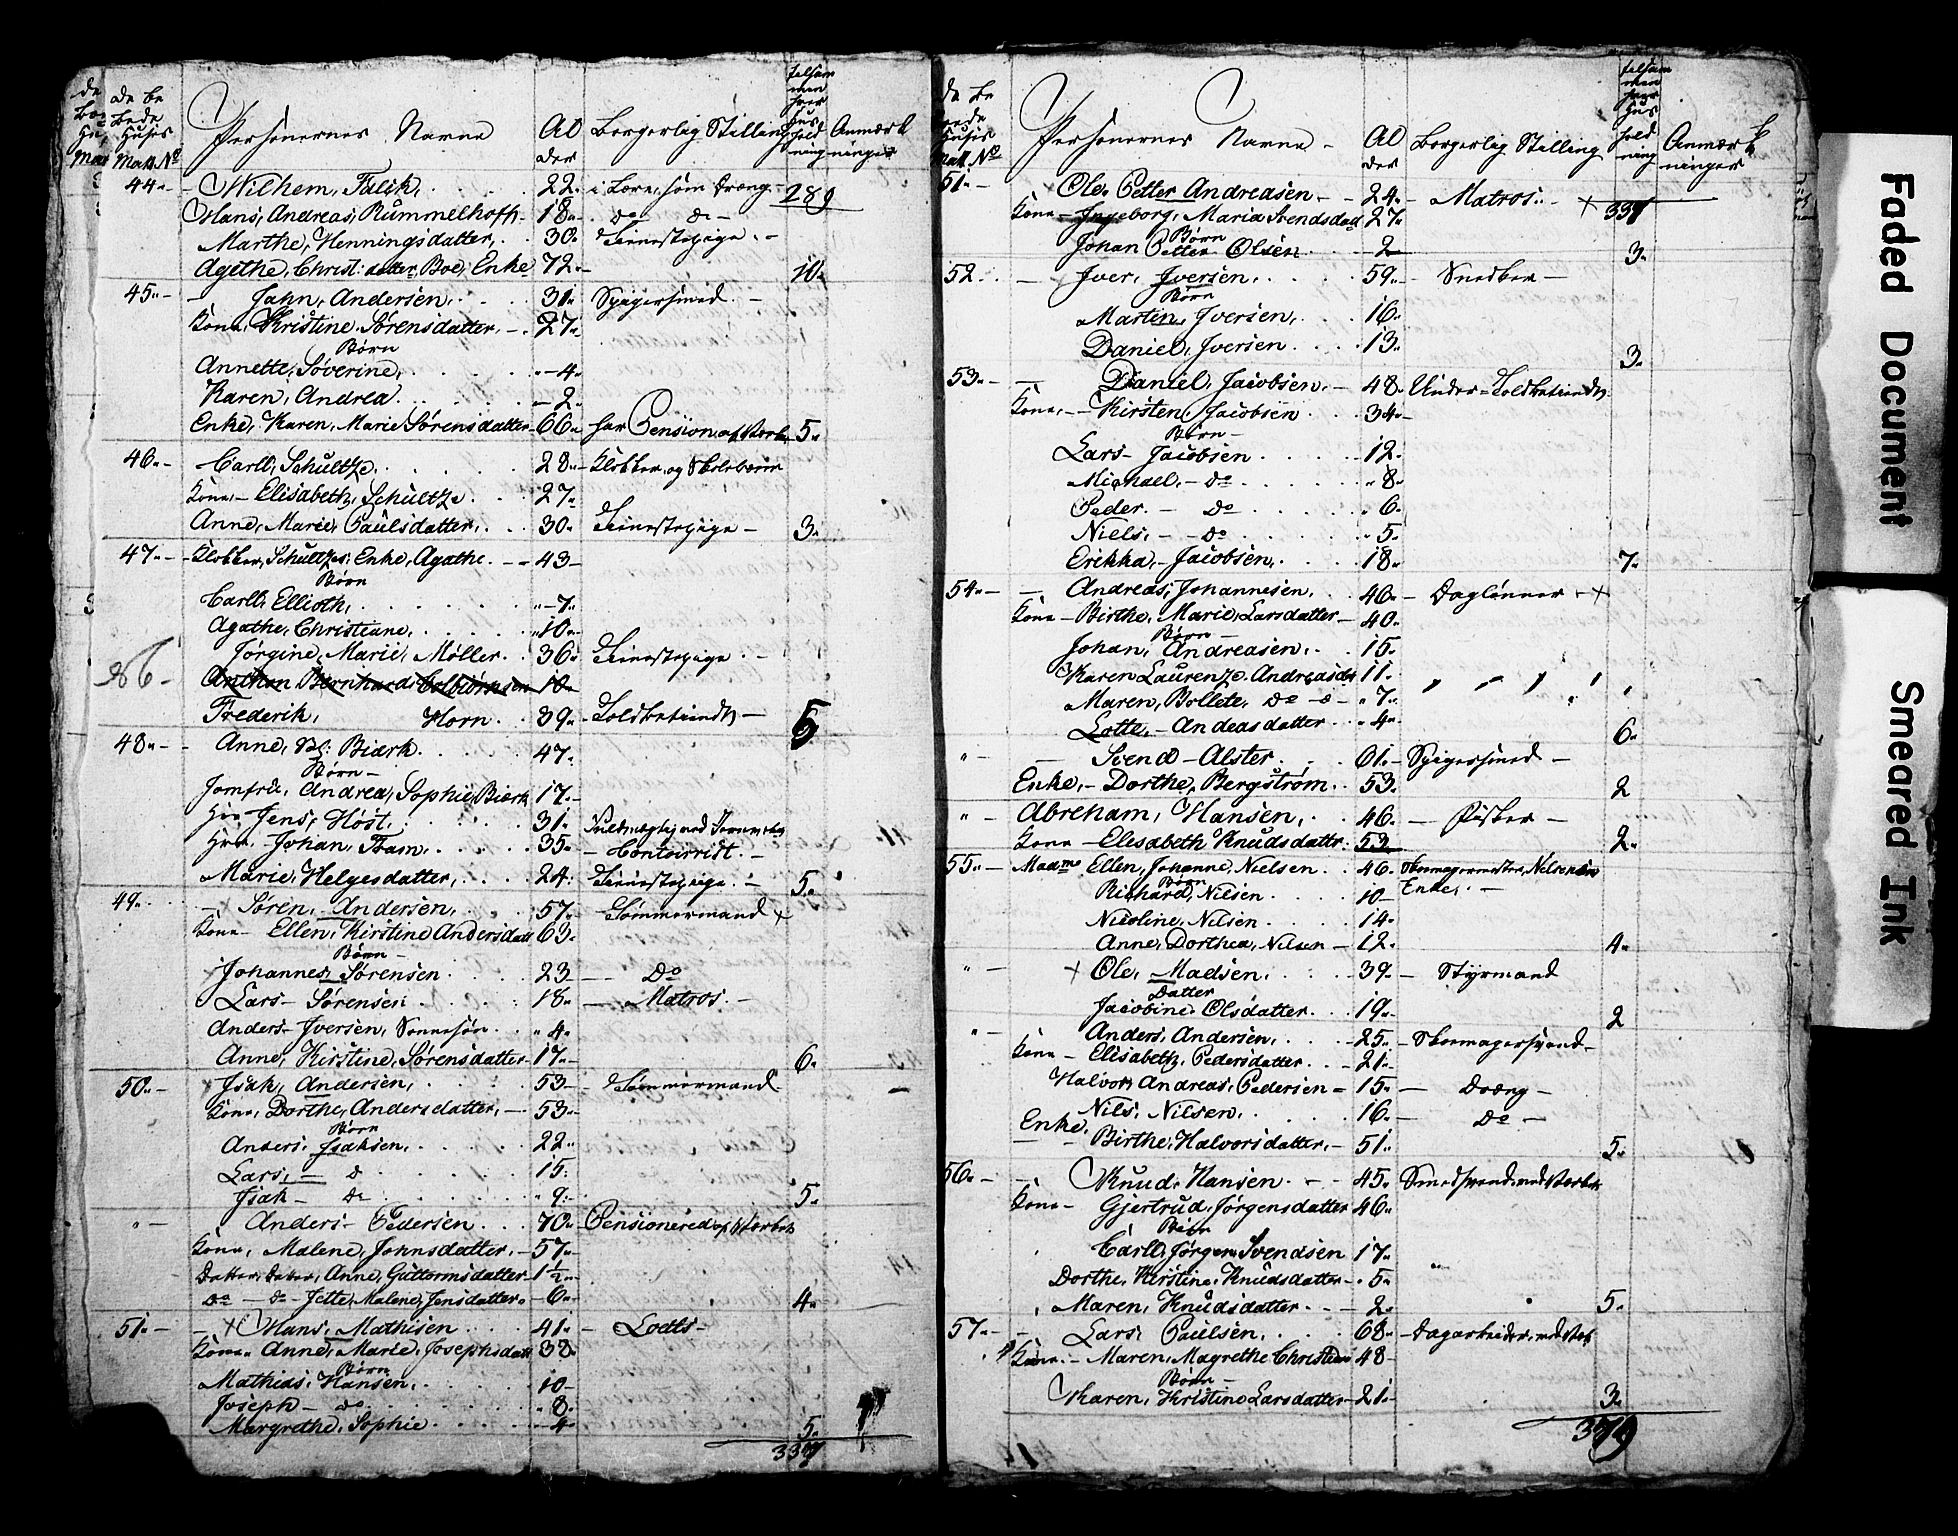 de be Personernes Navne Al Borgerlig Stilling Anmærk
bede Huses der ninger
Matr No
44 Wilhem, Falck, 22 i Lære som dræng 289
Hans, Andreas, Rümmelhoff 18 do do
Marthe, Henningsdatter, 30 Tienestepige
Agethe, Christ: datter Boe, Enke 72 10
45 Jahn, Andersen, 31 Spigersmed
Kone, Kristine Sørensdatter, 27
Børn
Annette, Søverine, 4
Karen, Andrea 2
Enke, Karen, Marie Sørensdatter 66 har Pension af 5
46 Carll, Schultze, 28 Klokker og Skolelærer
Kone, Elisabeth, Schultze 27
Anne, Marie, Paulsdatter, 30 Tienestepige 3
47 Klokker, Schultzes Enke, Agathe 43
Børn
Carll, Ellioth, 7
Agathe, Christiane, 10
Jørgine, Marie, Møller 36 Tienestepige
Anthon Bernhard 10
Frederik, Horn 39 Toldbetiendt 5
48 Anne, Bl: Biørk 47
Børn
Jomfru, Andrea, Sophie, Biørk 17
Hrr Jens, Høst, 31
Hrr Johan, Fram, 35 Contoirist
Marie, Helgesdatter, 24 Tienestepige 5
49 Søren, Andersen, 57 Tømmermand
Kone Ellen, Kirstine Andersdatt 63
Børn
Johannes, Sørensen 23 Do
Lars Sørensen 18 Matros
Anders Iversen, Sonnesøn 4
Anne, Kirstine, Sørensdatter 17 6
50 Isak, Andersen, 53 Tømmermand
Kone, Dorthe, Andersdatter, 53
Børn
Anders, Isaksen, 22
Lars, d 15
Isak do 9 5
" Anders Pedersen 70 Pensionered af
Kone, Malene, Johnsdatter, 57
Datter, Anne, Guttormsdatter 1½
do do Jette, Malene, Jensdatter 6 4
51 Hans, Mathisen 41 Lodts
Kone Anne, Marie, Josephsdatt 38
Børn
Mathias, Hansen, 10
Joseph do 8
Margrethe, Sophie 4 5
337
de be Personernes Navne Al Borgerlig Stilling Anmærk
bede Huses der ninger
Matr No
51 Ole, Petter Andreasen 24 Matros 337
Kone Ingeborg, Maria Svendsdat 27
Børn
Johan Petter Olsen 2 3
52 Iver, Iversen, 59 Snedker
Børn
Martin, Iversen, 16
Daniel, Iversen 13 3
53 Daniel, Jacobsen, 48 Under Toldbetiendt
Kone, Kirsten, Jacobsen 34
Børn
Lars Jacobsen 12
Michael, do 8
Peder do 6
Niels, do 5
Erikka, Jacobsen, 18 7
54 Andreas, Johannesen, 46 Daglønner
Kone Birthe, Marie, Larsdatter 40
Børn
Johan, Andreasen, 15
Karen Laurenze, Andreasdat 11
Maren, Bollete, do d 7
Lotte, Andreasdatter 4 6
" Svend Alster 61 Spigersmed
Enke, Dorthe, Bergstrøm 53 2
" Abreham, Hansen, 46 Fisker
Kone Elesabeth Knudsdatter 53 2
55 Madme Ellen, Johanne, Nielsen 46 Skomagermester, Nilsens
Børn Enke
Richard, Nilsen 10
Nicoline, Nilsen 14
Anne, Dorthea, Nilsen 12 4
" Ole, Madsen, 39 Styrmand
Datter
Jacobine Olsdatter 19 2
" Anders, Andersen, 25 Skomagersvend
Kone Elisabeth, Pedersdatter 21
Halvor, Andreas, Pedersen 15 Dræng
Nils, Nilsen, 16 Do
Enke
Birthe, Halvorsdatter, 51 5
56 Knud, Hansen 45
Kone Gjertrud, Jørgensdatter 46
Børn
Carll, Jørgen Svendsen 17
Dorthe, Kirstine, Knudsdatter 5
Maren, Knudsdatter 2 5
57 Lars, Paulsen, 68
Kone Maren, Magrethe Christian 48
Børn
Karen, Kristine Larsdatter 21 3
379
Faded Document
Smeared Ink